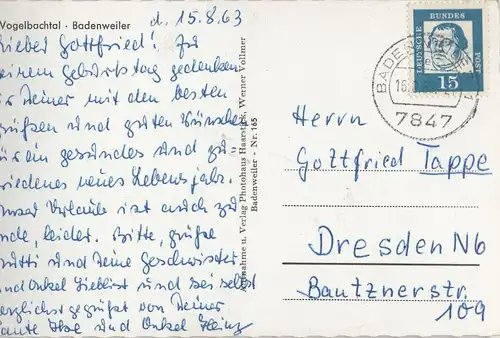 Vogelbachtal · Badenweiler
d. 15.8.63
Lieber Gottfried! Zu
einem Geburtstag gedenken
wir Deiner mit den besten
Grüßen und guten Wünschen
für ein gesundes und zu-
friedenes neues Lebensjahr.
Unser Urlaub ist auch zu
Ende, leider. Bitte, grüße
Mutti und Deine Geschwister
und Onkel und sei selbst
herzlichst gegrüßt von Deiner
Tante Ilse und Onkel Heinz
Aufnahme u. Verlag Photohaus Haarstick, Werner Vollmer
Badenweiler - Nr. 165
DEUTSCHE BUNDESPOST
15
BADE
7847
Herrn
Gottfried Tappe
Dresden N6
Bautznerstr.
109